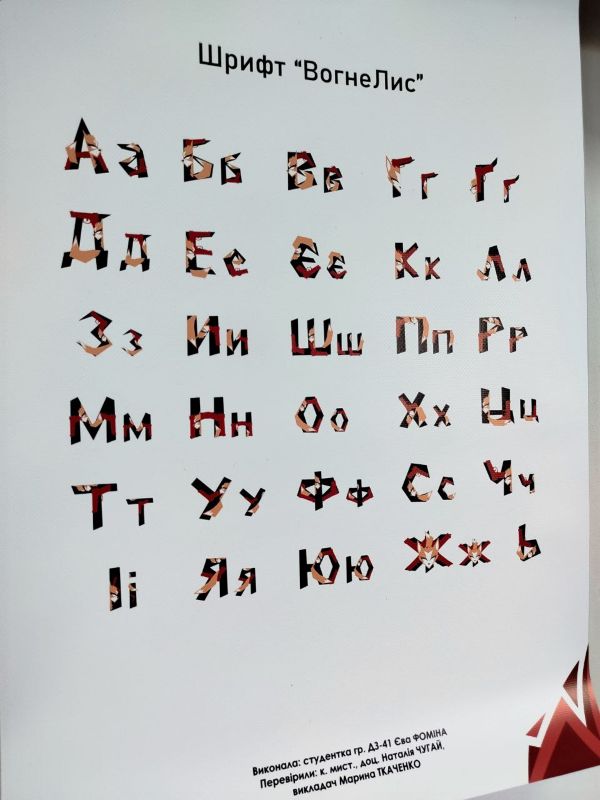 Шрифт “ВогнеЛис”
Аа Бб Вв Гг Ґґ
Дд Ее Єє Кк Лл
Зз Ии Шш Пп Рр
Мм Нн Оо Хх Цц
Тт Уу Фф Сс Чч
Іі Яя Юю Жж Ь
Виконала: студентка гр. ДЗ-41 Єва ФОМІНА
Перевірили: к. мист., доц. Наталія ЧУГАЙ,
викладач Марина ТКАЧЕНКО